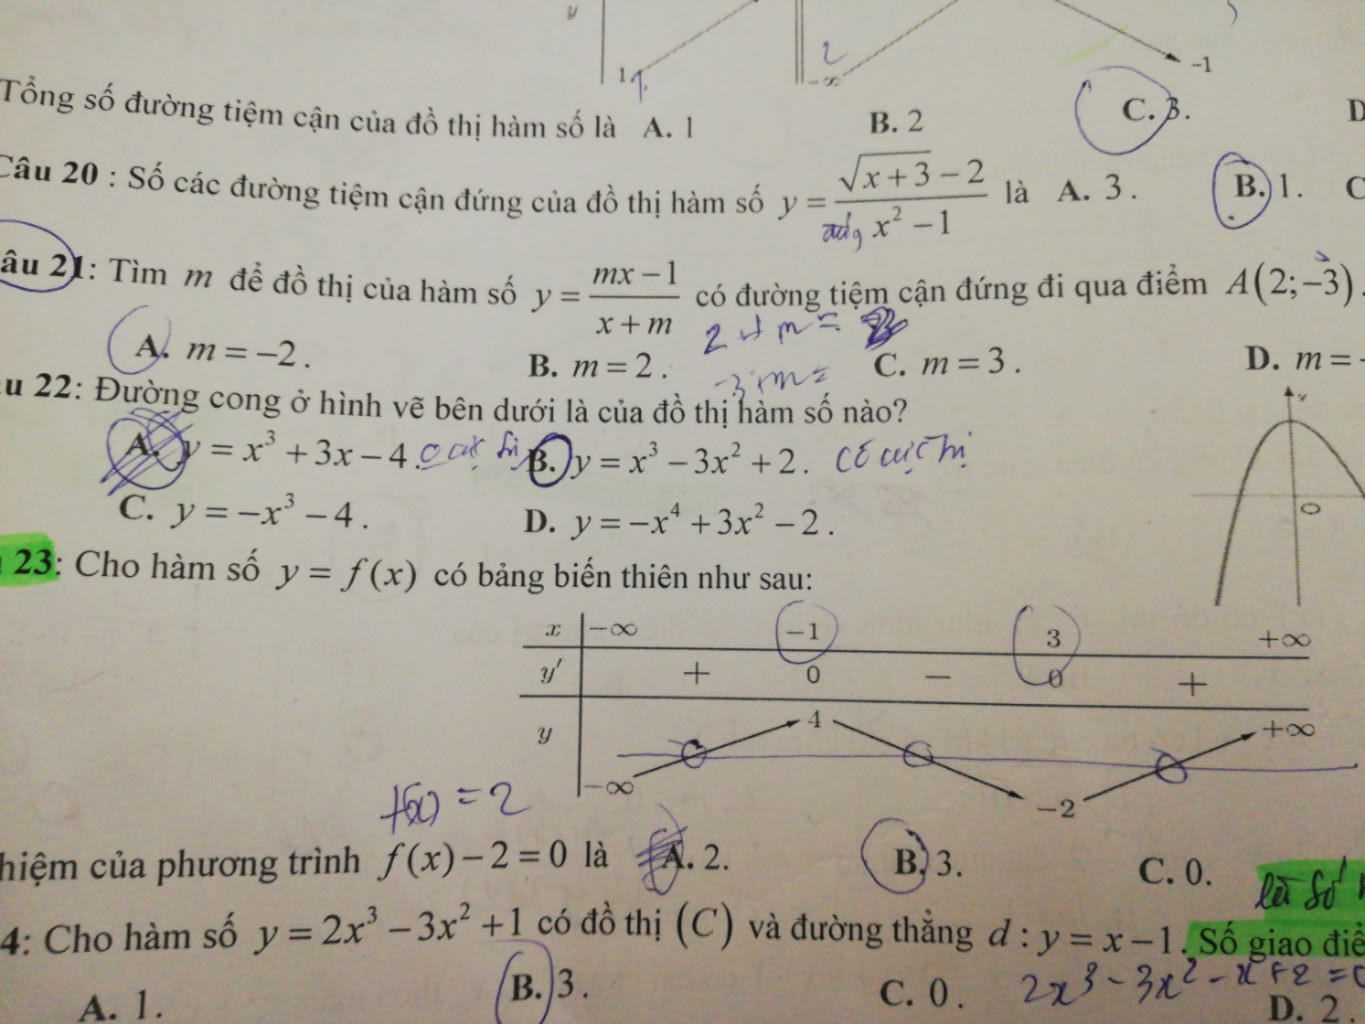 y 1 2 -∞ -1
Tổng số đường tiệm cận của đồ thị hàm số là A. 1 B. 2 C. 3.
Câu 20 : Số các đường tiệm cận đứng của đồ thị hàm số y = (√(x+3) − 2)/(x² − 1) là A. 3 . B. 1. C
âu 21: Tìm m để đồ thị của hàm số y = (mx − 1)/(x + m) có đường tiệm cận đứng đi qua điểm A(2;−3).
2 + m =
A. m = −2 . B. m = 2 . C. m = 3 . D. m = -
-3 m =
u 22: Đường cong ở hình vẽ bên dưới là của đồ thị hàm số nào?
A. y = x³ + 3x − 4 . B. y = x³ − 3x² + 2 . có cực trị
C. y = −x³ − 4 . D. y = −x⁴ + 3x² − 2 .
O
23: Cho hàm số y = f(x) có bảng biến thiên như sau:
x −∞ −1 3 +∞
y′ + 0 − 0 +
y −∞ 4 −2 +∞
f(x) = 2
hiệm của phương trình f(x) − 2 = 0 là A. 2. B. 3. C. 0.
là số
4: Cho hàm số y = 2x³ − 3x² + 1 có đồ thị (C) và đường thẳng d : y = x − 1 . Số giao điể
2x³ - 3x² - x + 2 = 0
A. 1. B. 3 . C. 0 . D. 2 .